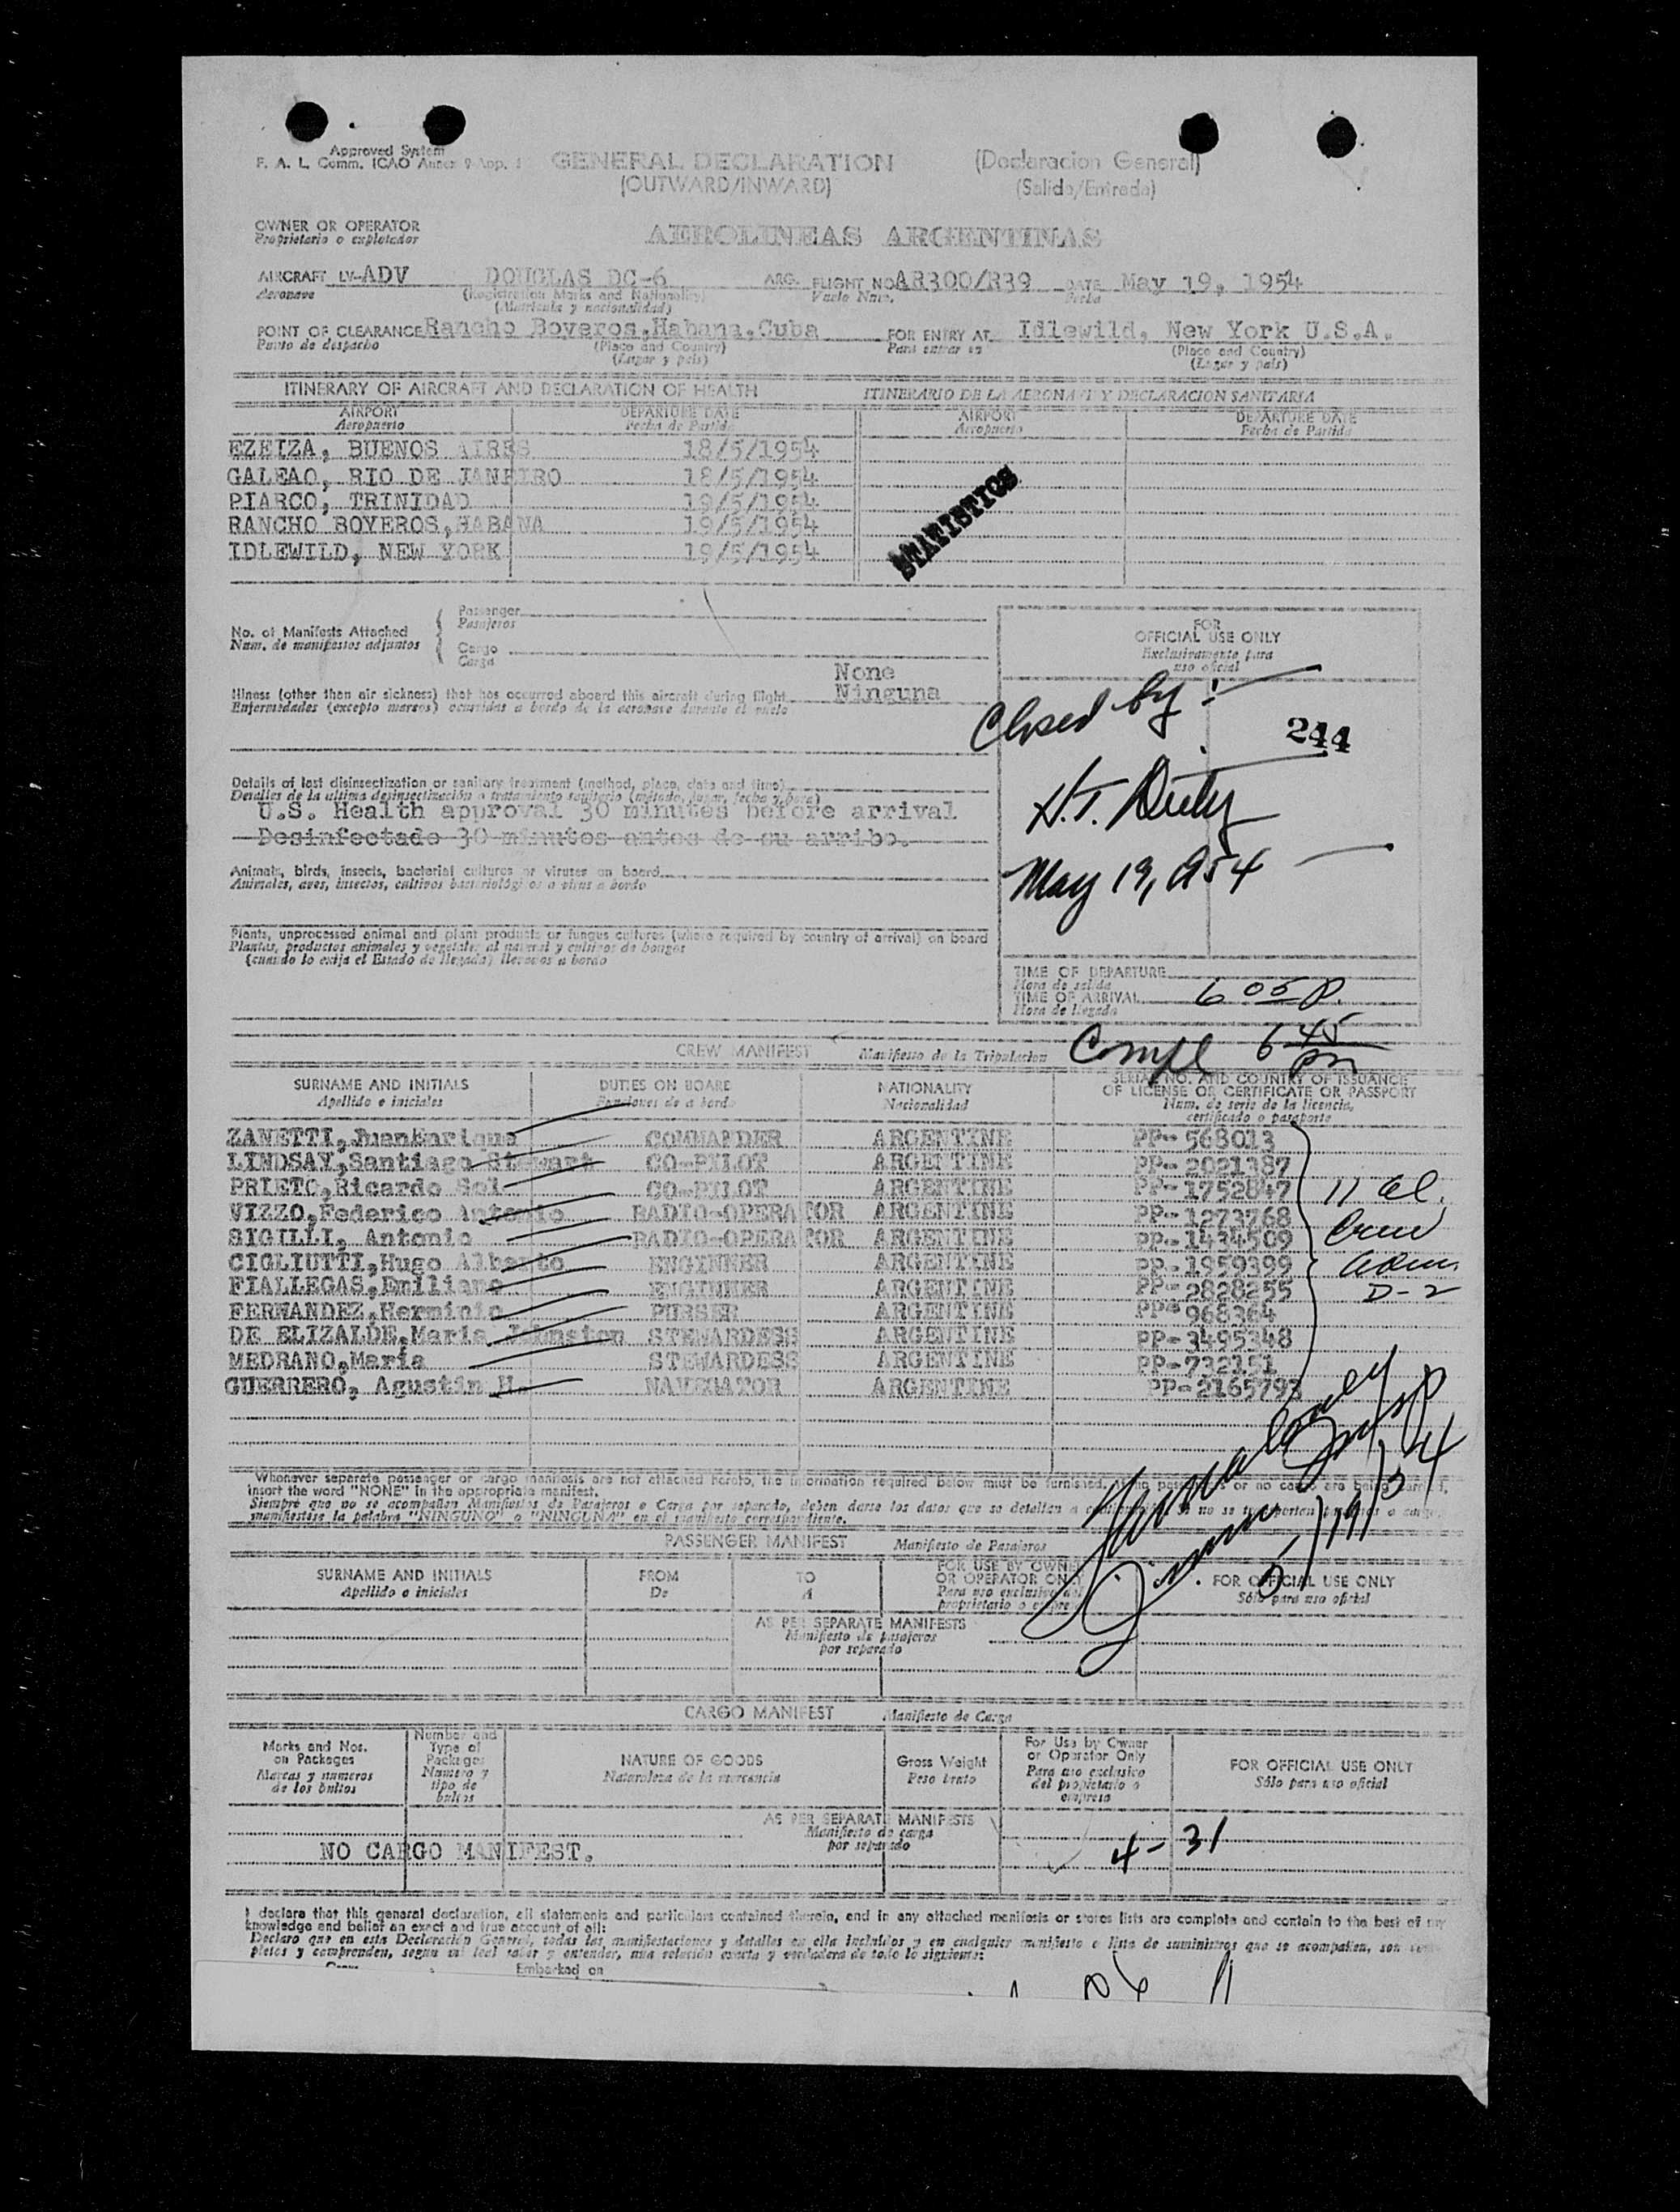 Approved System
F. A. L. Comm. ICAO Annex 9 App. 1
GENERAL DECLARATION
(OUTWARD/INWARD)
(Declaracion General)
(Salida/Entrada)
OWNER OR OPERATOR
Proprietario o explotador
AEROLINEAS ARGENTINAS
AIRCRAFT LV-ADV DOUGLAS DC-6 ARG. FLIGHT NO AR300/R39 DATE May 19, 1954
Aeronave (Registration Marks and Nationality) Vuelo Num. Fecha
(Matricula y nacionalidad)
POINT OF CLEARANCE Rancho Boyeros,Habana,Cuba FOR ENTRY AT Idlewild, New York U.S.A.
Punto de despacho (Place and Country) Para entrar en (Place and Country)
(Lugar y pais) (Lugar y pais)
ITINERARY OF AIRCRAFT AND DECLARATION OF HEALTH ITINERARIO DE LA AERONAVE Y DECLARACION SANITARIA
AIRPORT DEPARTURE DATE AIRPORT DEPARTURE DATE
Aeropuerto Fecha de Partida Aeropuerto Fecha de Partida
EZEIZA, BUENOS AIRES 18/5/1954
GALEAO, RIO DE JANEIRO 18/5/1954
PIARCO, TRINIDAD 19/5/1954
RANCHO BOYEROS,HABANA 19/5/1954
IDLEWILD, NEW YORK 19/5/1954
STATISTICS
No. of Manifests Attached
Num. de manifiestos adjuntos
Passenger
Pasajeros
Cargo
Carga
None
Illness (other than air sickness) that has occurred aboard this aircraft during flight Ninguna
Enfermedades (excepto mareos) ocurridas a bordo de la aeronave durante el vuelo
FOR
OFFICIAL USE ONLY
Exclusivamente para
uso oficial
Closed by:
244
May 19, 1954
Details of last disinsectization or sanitary treatment (method, place, date and time)
Detalles de la ultima desinsectización o tratamiento sanitario (método, lugar, fecha y hora)
U.S. Health approval 30 minutes before arrival
Desinfectado 30 minutos antes de su arribo.
Animals, birds, insects, bacterial cultures or viruses on board
Animales, aves, insectos, cultivos bacteriológicos o virus a bordo
Plants, unprocessed animal and plant products or fungus cultures (where required by country of arrival) on board
Plantas, productos animales y vegetales al natural y cultivos de hongos
(cuando lo exija el Estado de llegada) llevados a bordo
TIME OF DEPARTURE
Hora de salida
TIME OF ARRIVAL 6 05 P.
Hora de llegada
CREW MANIFEST Manifiesto de la Tripulacion Compl 6 45 pm
SURNAME AND INITIALS DUTIES ON BOARD NATIONALITY SERIAL NO. AND COUNTRY OF ISSUANCE
Apellido e iniciales Funciones de a bordo Nacionalidad OF LICENSE OR CERTIFICATE OR PASSPORT
Num. de serie de la licencia,
certificado o pasaporte
ZANETTI,JuanEnrique COMMANDER ARGENTINE PP- 568013
LINDSAY,Santiago Stewart CO-PILOT ARGENTINE PP- 2021387
PRIETO,Ricardo Sol CO-PILOT ARGENTINE PP- 1752847
VIZZO,Federico Antonio RADIO-OPERATOR ARGENTINE PP- 1273768
SIGILLI, Antonio RADIO-OPERATOR ARGENTINE PP- 1434509
CIGLIUTTI,Hugo Alberto ENGINNER ARGENTINE PP- 1959399
FIALLEGAS,Emiliano ENGINNER ARGENTINE PP- 2828255
FERNANDEZ,Herminio PURSER ARGENTINE PP- 968364
DE ELIZALDE,Maria Johnston STEWARDESS ARGENTINE PP- 3495348
MEDRANO,Maria STEWARDESS ARGENTINE PP- 732151
GUERRERO, Agustin H. NAVEGATOR ARGENTINE PP- 2165793
11 al.
Crew
adm.
D-2
5/19/54
Whenever separate passenger or cargo manifests are not attached hereto, the information required below must be furnished.
insert the word "NONE" in the appropriate manifest.
Siempre que no se acompañen Manifiestos de Pasajeros o Carga por separado, deben darse los datos que se detallan a
manifiestese la palabra "NINGUNO" o "NINGUNA" en el manifiesto correspondiente.
PASSENGER MANIFEST Manifiesto de Pasajeros
SURNAME AND INITIALS FROM TO FOR USE BY OWNER FOR OFFICIAL USE ONLY
Apellido e iniciales De A OR OPERATOR ONLY Sólo para uso oficial
Para uso exclusivo del
proprietario o empresa
AS PER SEPARATE MANIFESTS
Manifiesto de pasajeros
por separado
CARGO MANIFEST Manifiesto de Carga
Marks and Nos.
on Packages
Marcas y numeros
de los bultos
Number and
Type of
Packages
Numero y
tipo de
bultos
NATURE OF GOODS
Naturaleza de la mercancia
Gross Weight
Peso bruto
For Use by Owner
or Operator Only
Para uso exclusivo
del propietario o
empresa
FOR OFFICIAL USE ONLY
Sólo para uso oficial
AS PER SEPARATE MANIFESTS
Manifiesto de carga
por separado
NO CARGO MANIFEST.
4- 31
I declare that this general declaration, all statements and particulars contained therein, and in any attached manifests or stores lists are complete and contain to the best of my
knowledge and belief an exact and true account of all:
Declaro que en esta Declaración General, todas las manifestaciones y detalles en ella incluídos y en cualquier manifiesto o lista de suministros que se acompañen, son
pletos y comprenden, segun mi leal saber y entender, una relación exacta y verdadera de todo lo siguiente:
Embarked on